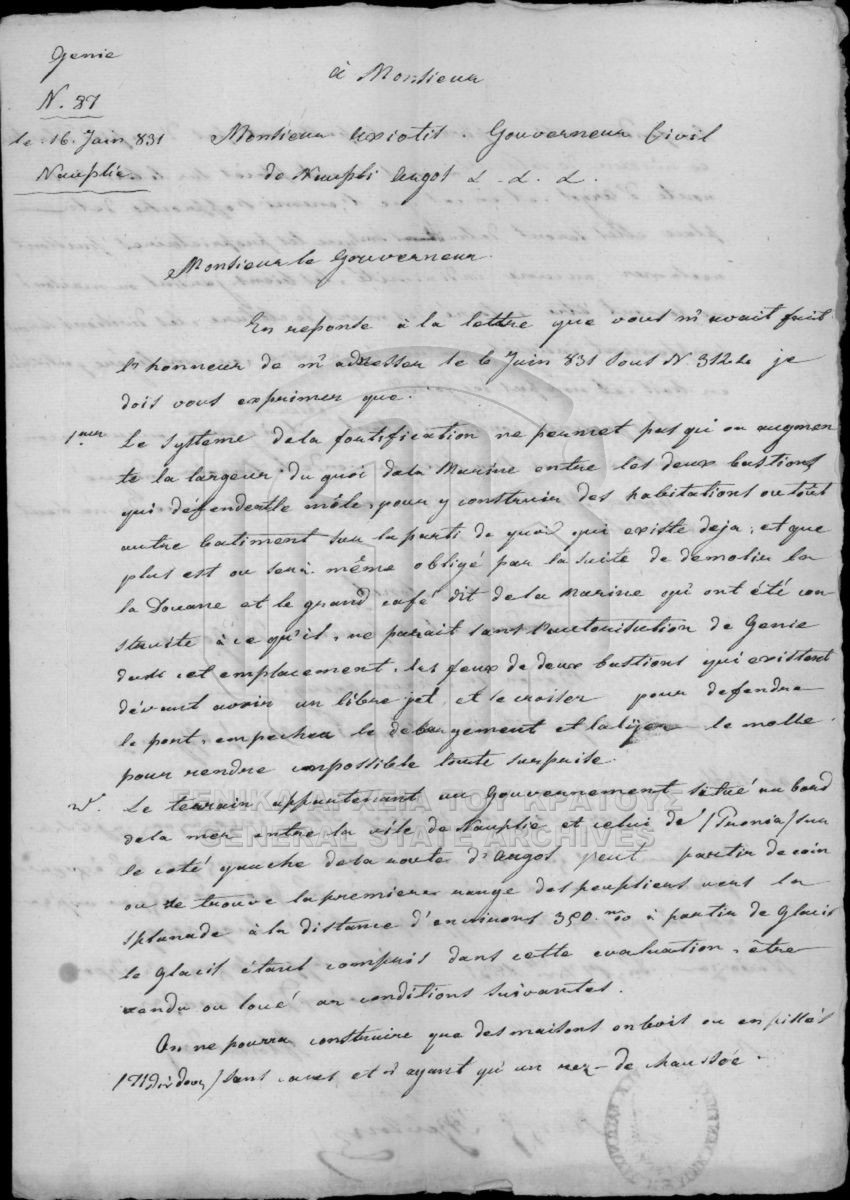 Genie
N. 37
le 16. Juin 831
Nauplie.
à Monsieur
Monsieur Axiotis. Gouverneur Civil
de Naupli Argos &. &. &.
Monsieur le Gouverneur.
En reponse à la lettre que vous m'avait fait
l'honneur de m'adresser le 6 Juin 831 sous N. 3122 je
dois vous exprimer que.
1mer Le systeme dela fortification ne permet pas qu'on augmen
te la largeur du quoi dela Marine entre les deux bastions
qui défendent le môle, pour y construir des habitations ou tout
autre batiment sur la parti de quoi qui existe deja, et que
plus est on sera même obligé par la suite de demolir la
la Douane et le grand café dit de la Marine qui ont été con
struite à ce qu'il, me parait sans l'autorisation de Genie
dans cet emplacement, les feux de deux bastions qui existent
dévant avoir un libre jet, et se croiser pour defendre
le pont, empecher le debargement et la
le molle
pour rendre impossible toute surprise.
2d. Le terrain appartenant au Gouvernement situé au bord
dela mer entre la vile de Nauplie et celui de (Pronia) sur
le coté gauche dela route d'Argos peut partir de coin
ou se trouve la premiere range des peupliers vers la
splanade à la distance d'environs 350. mo à partir de Glacis
le Glacis étant compris dans cette evaluation, être
vendu ou loué ax conditions suivantes.
On ne pourra construire que des maisons en bois ou en pillés
sans caves et n'ayant qu'un rez-de chaussée.
ΓΕΝΙΚΑ ΑΡΧΕΙΑ ΤΟΥ ΚΡΑΤΟΥΣ
GENERAL STATE ARCHIVES